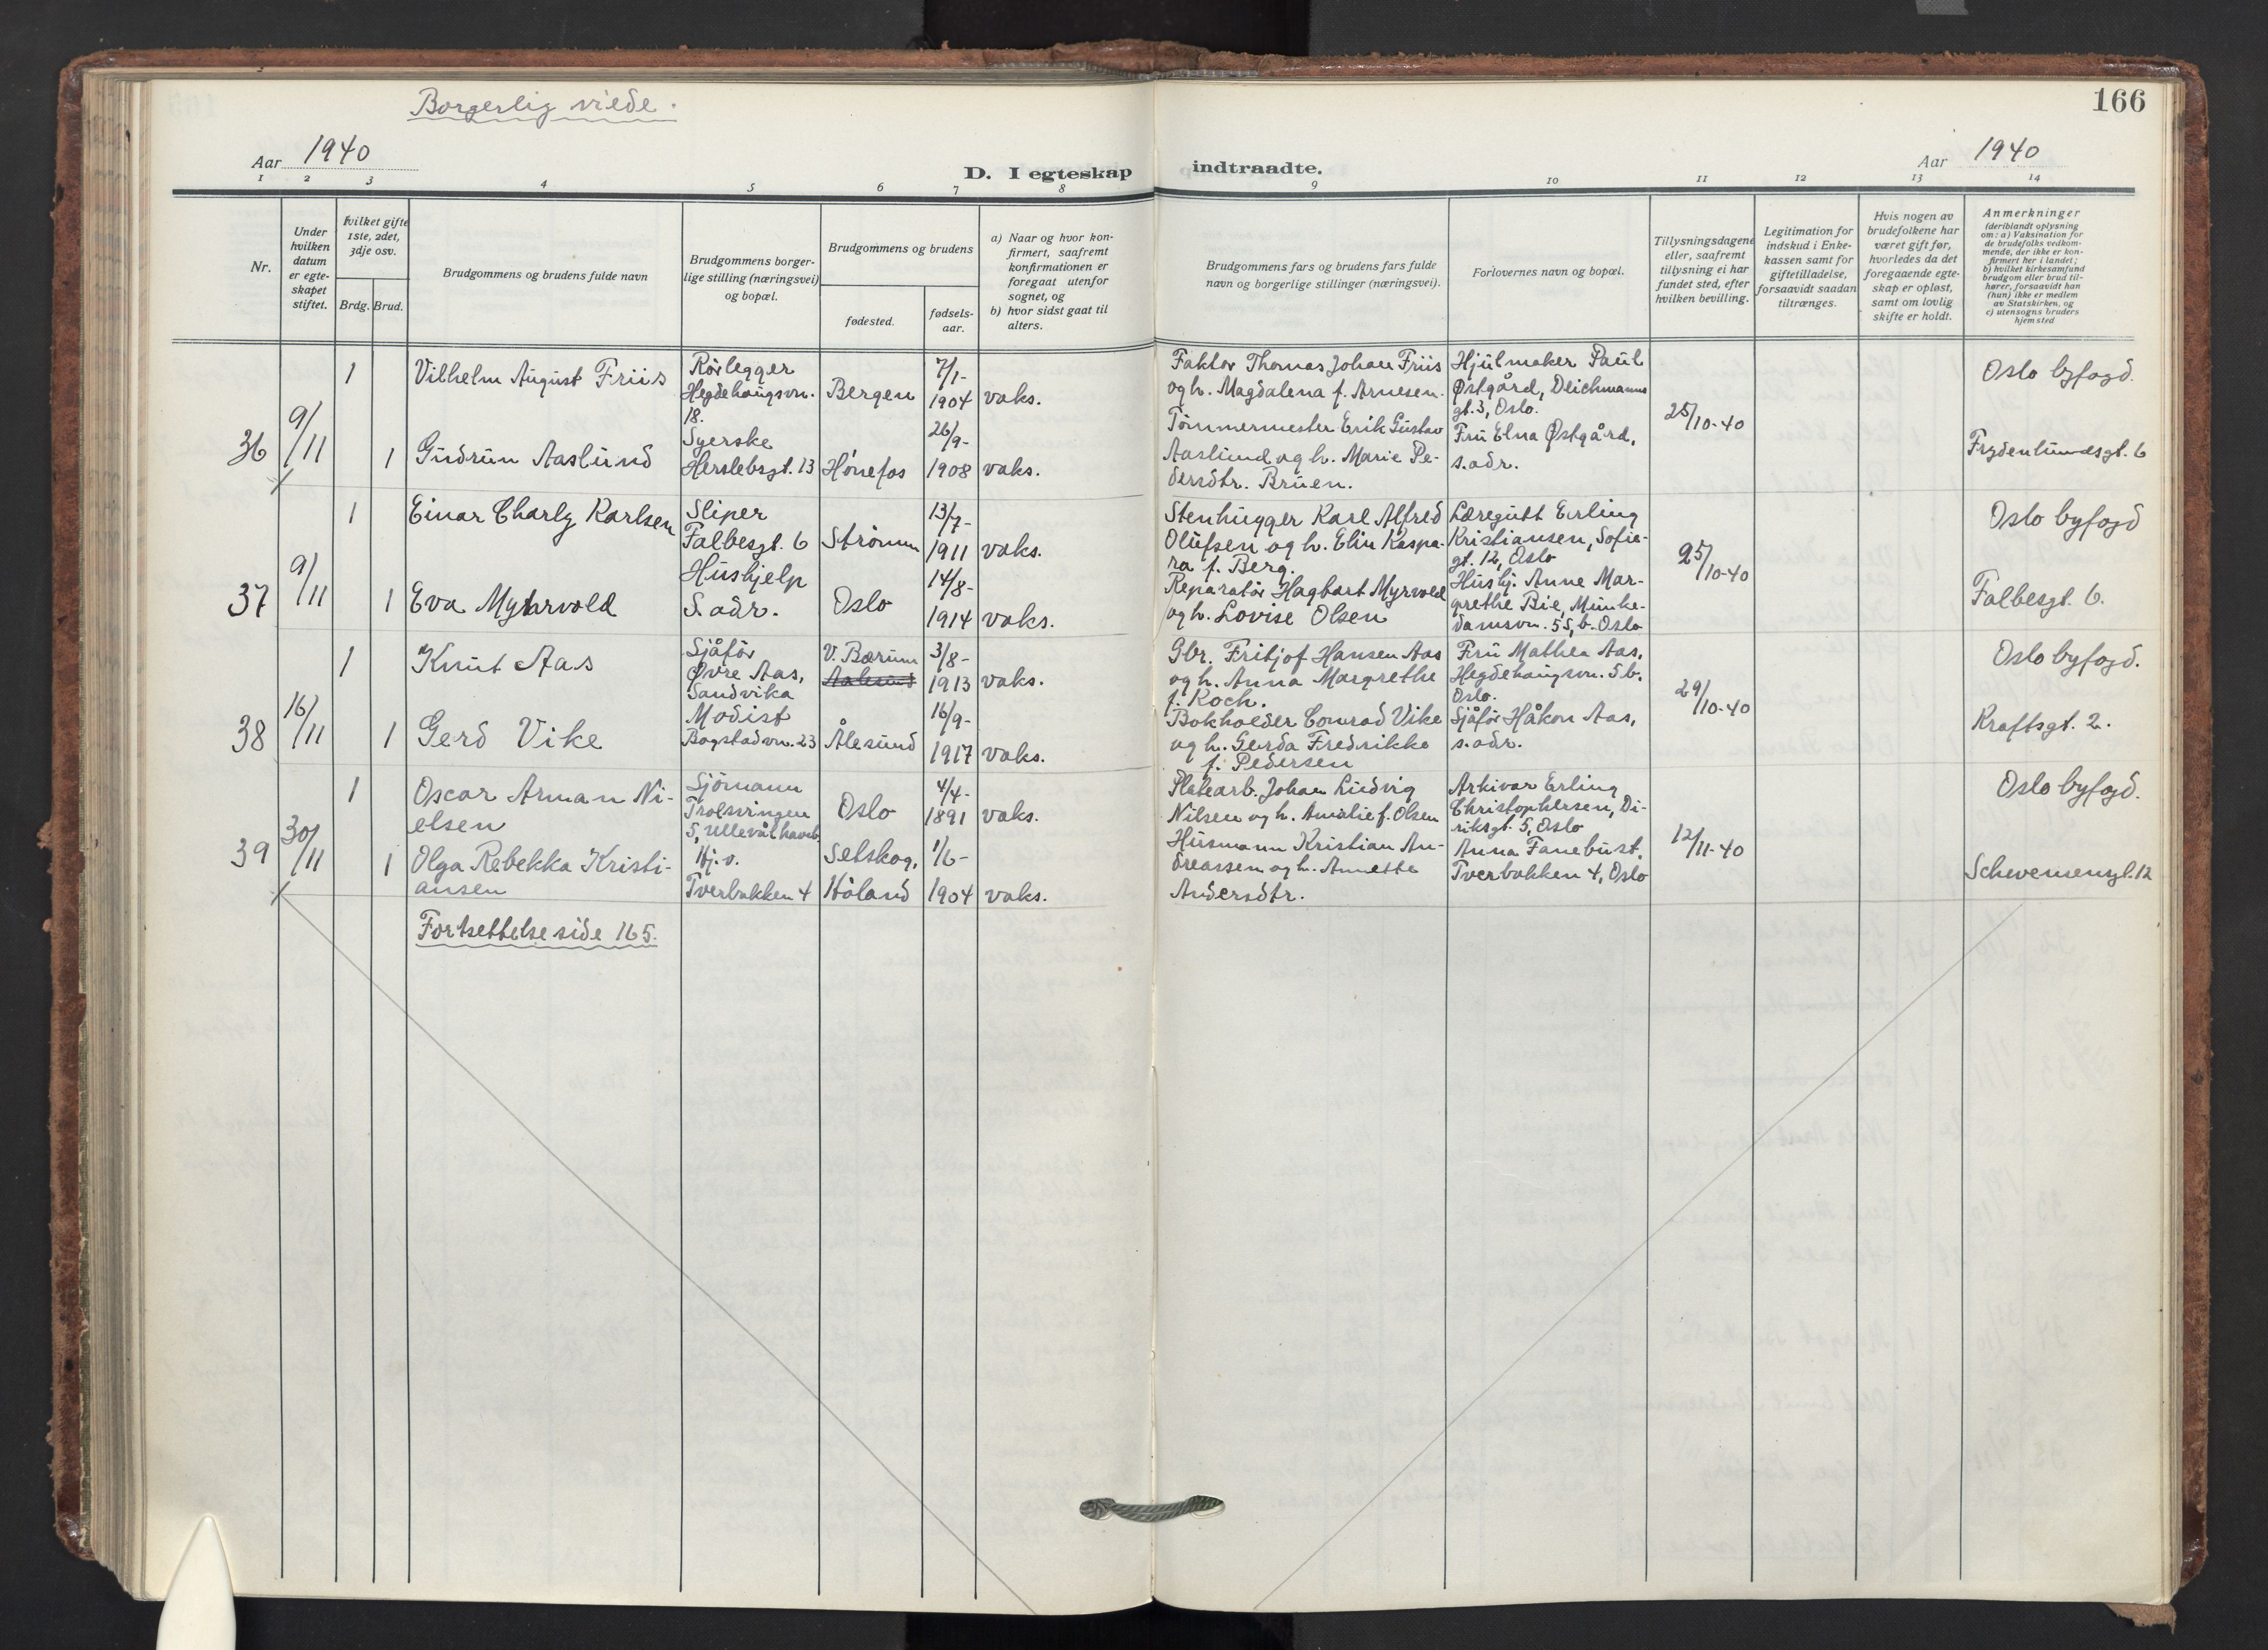 Borgerlig viede.
166
Aar 1940
D. I egteskap indtraadte.
Aar 1940
1 2 3 4 5 6 7 8 9 10 11 12 13 14
Nr.
Under
hvilken
datum
er egte-
skapet
stiftet.
Hvilket gifte
1ste, 2det,
3dje osv.
Brdg. Brud.
Brudgommens og brudens fulde navn
Brudgommens borger-
lige stilling (næringsvei)
og bopæl.
Brudgommens og brudens
fødested.
fødsels-
aar.
a) Naar og hvor kon-
firmert, saafremt
konfirmationen er
foregaat utenfor
sognet, og
b) hvor sidst gaat til
alters.
Brudgommens fars og brudens fars fulde
navn og borgerlige stillinger (næringsvei).
Forlovernes navn og bopæl.
Tillysningsdagene
eller, saafremt
tillysning ei har
fundet sted, efter
hvilken bevilling.
Legitimation for
indskud i Enke-
kassen samt for
giftetilladelse,
forsaavidt saadan
tiltrænges.
Hvis nogen av
brudefolkene har
været gift før,
hvorledes da det
foregaaende egte-
skap er opløst,
samt om lovlig
skifte er holdt.
Anmerkninger
(deriblandt oplysning
om: a) Vaksination for
de brudefolks vedkom-
mende, der ikke er kon-
firmert her i landet;
b) hvilket kirkesamfund
brudgom eller brud til-
hører, forsaavidt han
(hun) ikke er medlem
av Statskirken, og
c) utensogns bruders
hjemsted
36
9/11
1
Vilhelm August Friis
Rørlegger
Hegdehaugsvn.
18.
Bergen
7/1-
1904
vaks.
Faktor Thomas Johan Friis
og h. Magdalena f. Arnesen.
Hjulmaker Paul
Østgård, Deichmanns
gt. 3, Oslo.
25/10-40
Oslo byfogd.
1
Gudrun Aaslund
Syerske
Herslebsgt. 13
Hønefos
26/9-
1908
vaks.
Tømmermester Erik Gustav
Aaslund og h. Marie Pe-
dersdtr. Bruen.
Fru Elna Østgård,
s. adr.
Frydenlundsgt. 6
37
9/11
1
Einar Charly Karlsen
Sliper
Falbesgt. 6
Strømm
13/7-
1911
vaks.
Stenhugger Karl Alfred
Olufsen og h. Elin Kaspa-
ra f. Berg.
Læregutt Erling
Kristiansen, Sofie-
gt. 12, Oslo
25/10-40
Oslo byfogd
1
Eva Myhrvold
Hushjelp
S. adr.
Oslo
14/8-
1914
vaks.
Reparatør Hagbart Myrvold
og h. Lovise Olsen
Hushj. Anne Mar-
grethe Bie, Munke-
damsvn. 55, b. Oslo
Falbesgt. 6.
38
16/11
1
Knut Aas
Sjåfør
Øvre Aas,
Sandvika
V. Bærum
Aalesund
3/8-
1913
vaks.
Gbr. Fritjof Hansen Aas
og h. Anna Margrethe
f. Koch.
Fru Mathea Aas,
Hegdehaugsvn. 5 b.
Oslo.
29/10-40
Oslo byfogd.
1
Gerd Vike
Modist
Bogstadvn. 23
Ålesund
16/9-
1917
vaks.
Bokholder Conrad Vike
og h. Gerda Fredrikke
f. Pedersen
Sjåfør Håkon Aas,
s. adr.
Kraftsgt. 2.
39
30/11
1
Oscar Arman Ni-
elsen
Sjømann
Trolsvingen
5, Ullevål haveb.
Oslo
4/4-
1891
vaks.
Platearb. Johan Ludvig
Nilsen og h. Amalie f. Olsen
Arkivar Erling
Christophersen, Di-
riksgt. 5, Oslo
12/11-40
Oslo byfogd.
1
Olga Rebekka Kristi-
ansen
Hj. v.
Tverbakken 4
Setskog,
Høland
1/6-
1904
vaks.
Husmann Kristian An-
dreassen og h. Annette
Andersdtr.
Anna Fanebust,
Tverbakken 4, Oslo
Schevensengt. 12
Fortsettelse side 165.